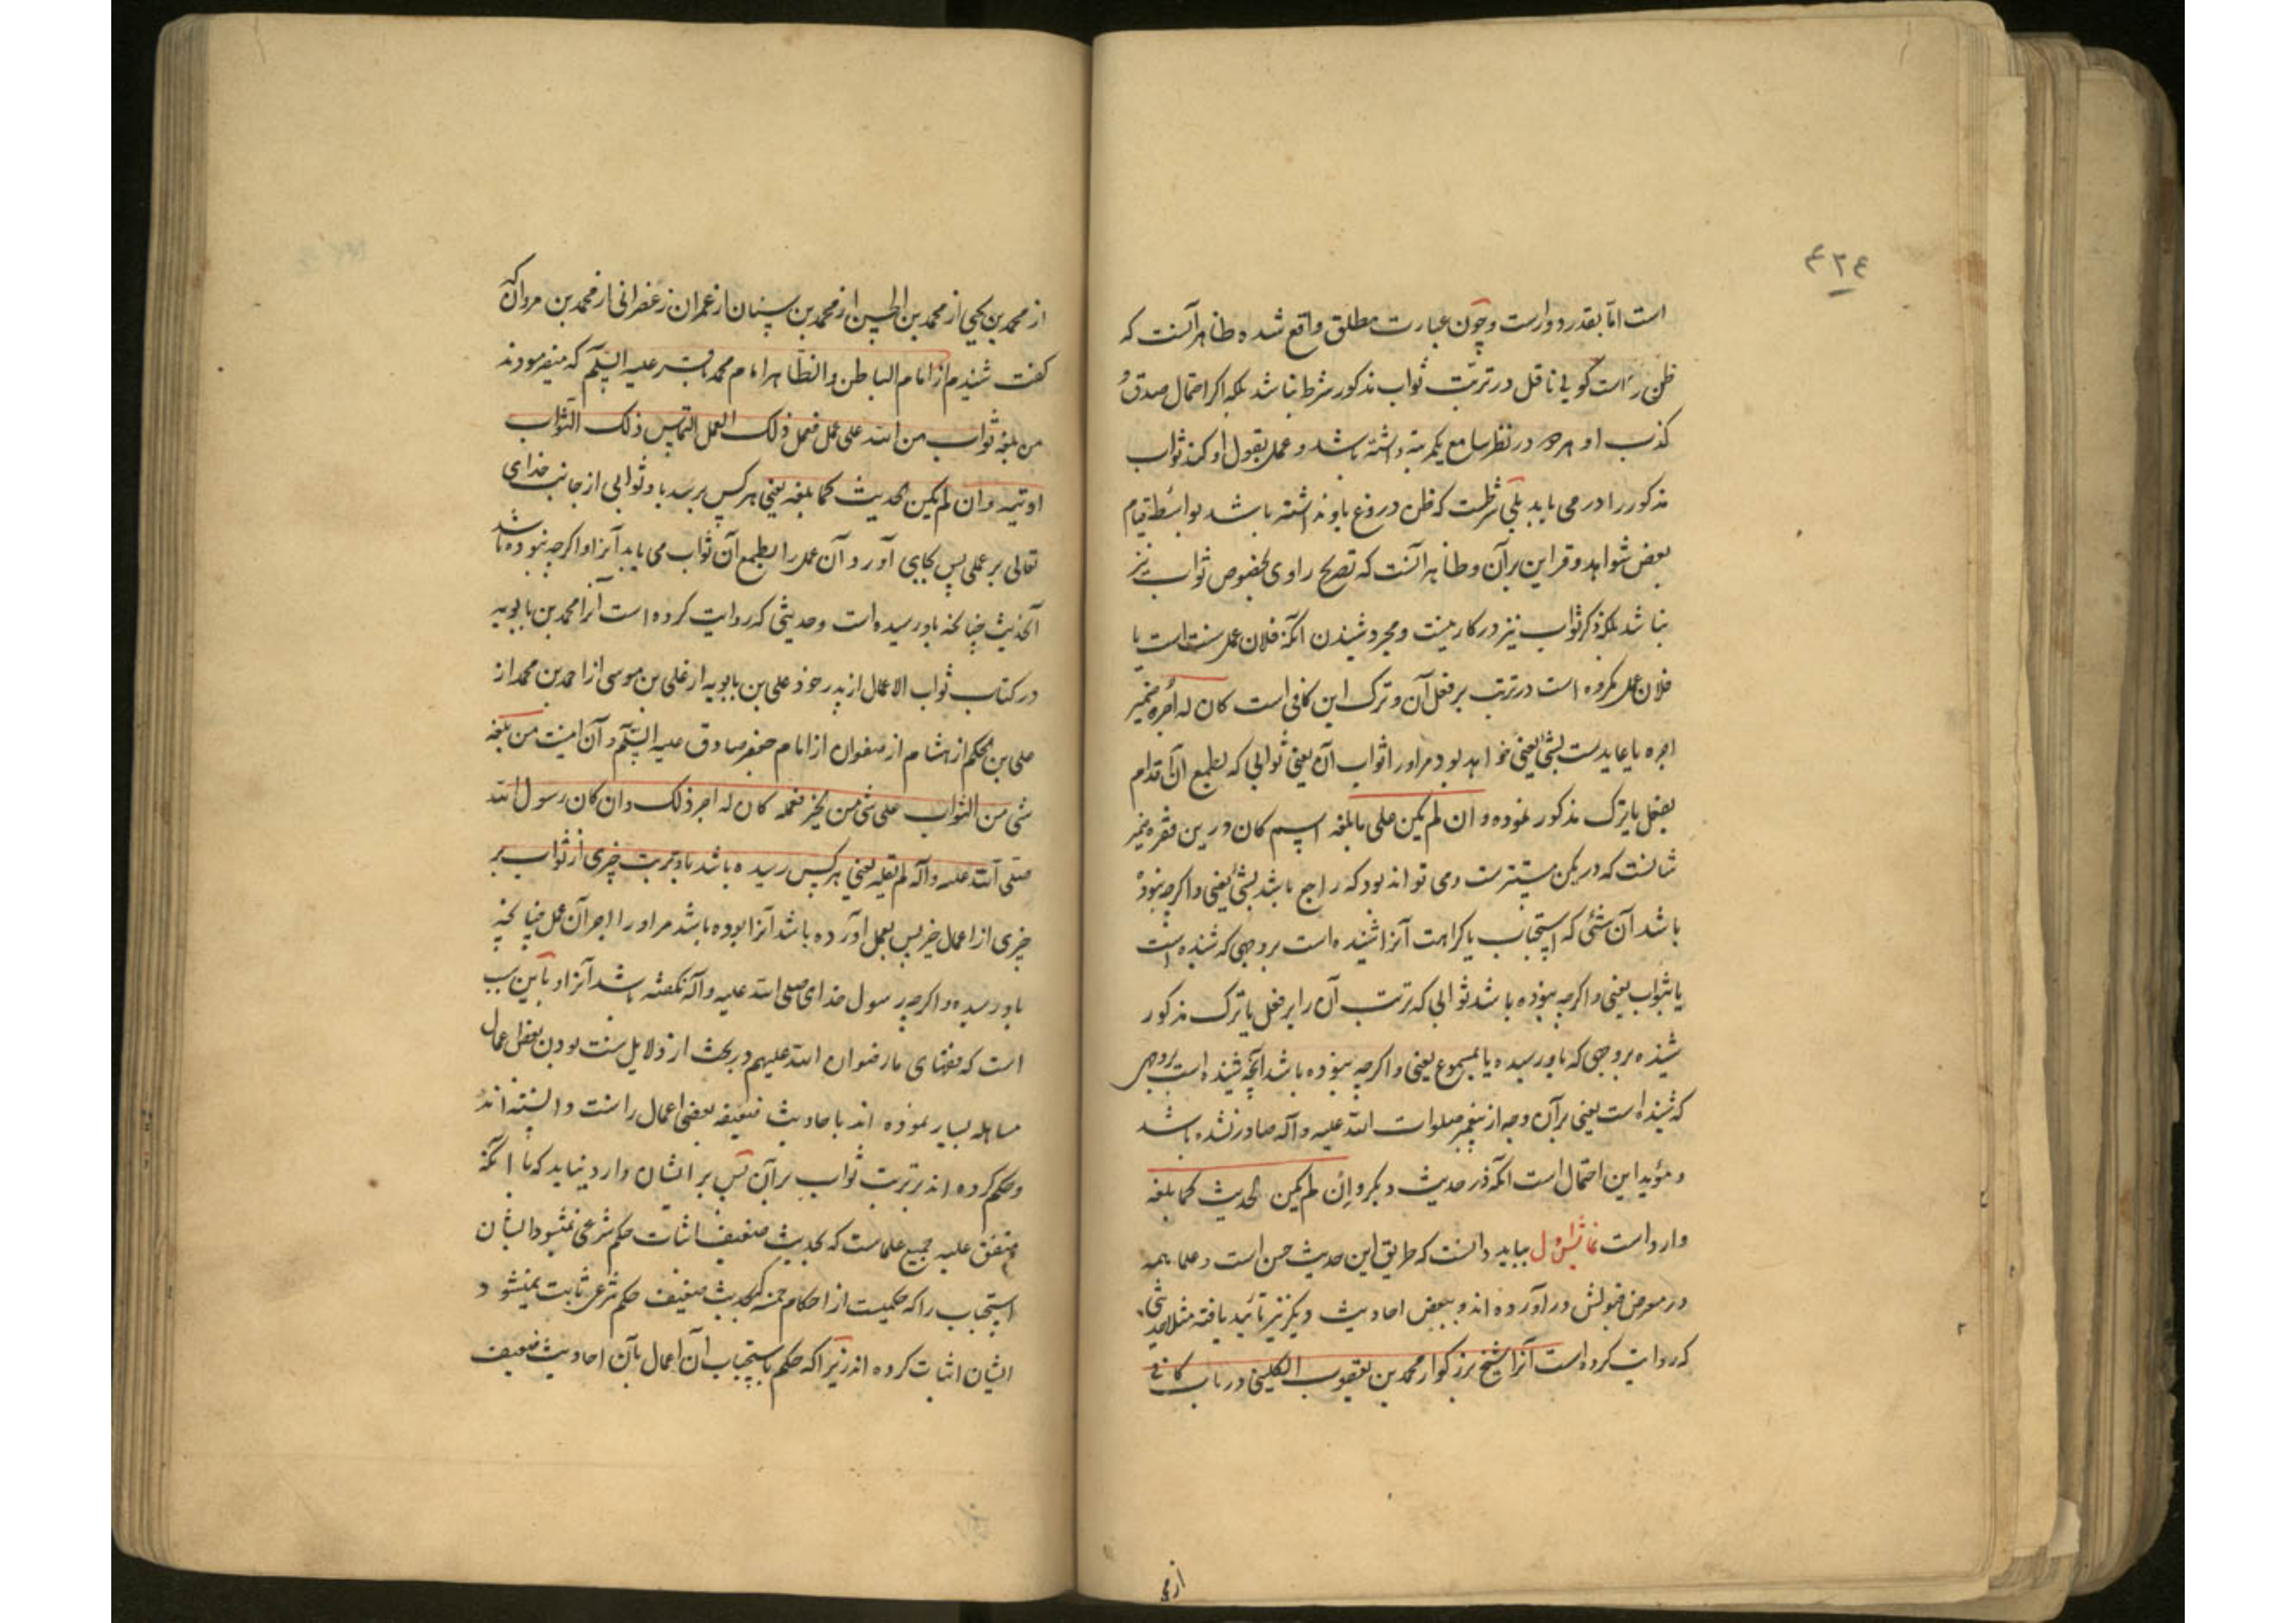 ۴۲۴
است اما بقدر دو ارست وچون عبارت مطلق واقع شده ظاهر آنست که
ظن راست کویی ناقل در ترتب ثواب مذکور شرط نباشد بلکه اکر احتمال صدق و
کذب او هر دو در نظر سامع یکمرتبه داشته باشد و عمل بقول او کند ثواب
مذکور را در می یابد بلی شرطست که ظن دروغ باو نداشته باشد بواسطه قیام
بعض شواهد و قراین بر آن وظاهر آنست که تصریح راوی بخصوص ثواب نیز
نباشد بلکه ذکر ثواب نیز در کار نیست ومجرد شنیدن انکه فلان عمل سنت است یا
فلان عمل مکروه است در ترتب بر فعل آن و ترک این کافی است کان له اجره ضمیر
اجره یا عایدست بشئ یعنی خواهد بود مر اورا ثواب آن یعنی ثوابی که بطمع آن اقدام
بفعل یا ترک مذکور نموده وان لم یکن علی ما بلغه اسم کان درین فقره ضمیر
شانست که در یکن مستترست ومی تواند بود که راجع باشد بشئ یعنی واکرچه نبوده
باشد آن شئی که استحباب یا کراهت آنرا شنیده است بر وجهی که شنیده است
یا بثواب یعنی واکرچه نبوده باشد ثوابی که ترتب آن را بر فعل یا ترک مذکور
شنیده بر وجهی که باو رسیده یا بمسموع یعنی واکرچه نبوده باشد آنچه شنیده است بر وجهی
که شنیده است یعنی بر آن وجه از پیغمبر صلوات الله علیه وآله صادر نشده باشد
و مؤید این احتمال است انکه در حدیث دیکر وان لم یکن الحدیث کما بلغه
وارد است بباید دانست که طریق این حدیث حسن است و علما همه
در معرض قبولش در آورده اند و ببعض احادیث دیکر نیز تأیید یافته مثلا حدیثی
که روایت کرده است آنرا شیخ بزرکوار محمد بن یعقوب الکلینی در باب کافی
از محمد بن یحیی از محمد بن الحسین از محمد بن سنان از عمران زعفرانی از محمد بن مروان که
کفت شنیدم از امام الباطن والظاهر امام محمد باقر علیه السلام که میفرمودند
من بلغه ثواب من الله علی عمل فعمل ذلک العمل التماس ذلک الثواب
اوتیه وان لم یکن الحدیث کما بلغه یعنی هر کس برسد باو ثوابی از جانب خدای
تعالی بر عملی پس بجای آورد آن عمل را بطمع آن ثواب می یابد آنرا واکرچه نبوده باشد
آنحدیث چنانچه باو رسیده است وحدیثی که روایت کرده است آنرا محمد بن بابویه
در کتاب ثواب الاعمال از پدر خود علی بن بابویه از علی بن موسی از احمد بن محمد از
علی بن الحکم از هشام از صفوان از امام جعفر صادق علیه السلم و آن اینست من بلغه
شئ من الثواب علی شئ من الخیر فعمله کان له اجر ذلک وان کان رسول الله
صلی الله علیه وآله لم یقله یعنی هر کس رسیده باشد باو ترتب چیزی از ثواب بر
چیزی از اعمال خیر پس بعمل آورده باشد آنرا بوده باشد مر اورا اجر آن عمل چنانچه
باو رسیده واکرچه رسول خدای صلی الله علیه وآله نکفته باشد آنرا و باین سبب
است که فقهای ما رضوان الله علیهم در بحث از دلایل سنت بودن بعض اعمال
مساهله بسیار نموده اند با حادیث ضعیفه بعضی اعمال را سنت دانسته اند
وحکم کرده اند بر ترتب ثواب بر آن پس بر ایشان وارد نیاید که با انکه
متفق علیه جمیع علماست که بحدیث ضعیف اثبات حکم شرعی نمیشود ایشان
استحباب را که حکمیست از احکام خمسه که بحدیث ضعیف حکم شرعی ثابت نمیشود
ایشان اثبات کرده اند زیرا که حکم باستحباب آن اعمال بآن احادیث ضعیف